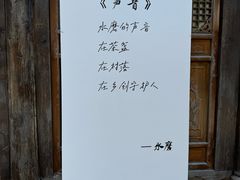 《声音》
水磨的声音
在茶盆
在村落
在乡创守护人
——水磨